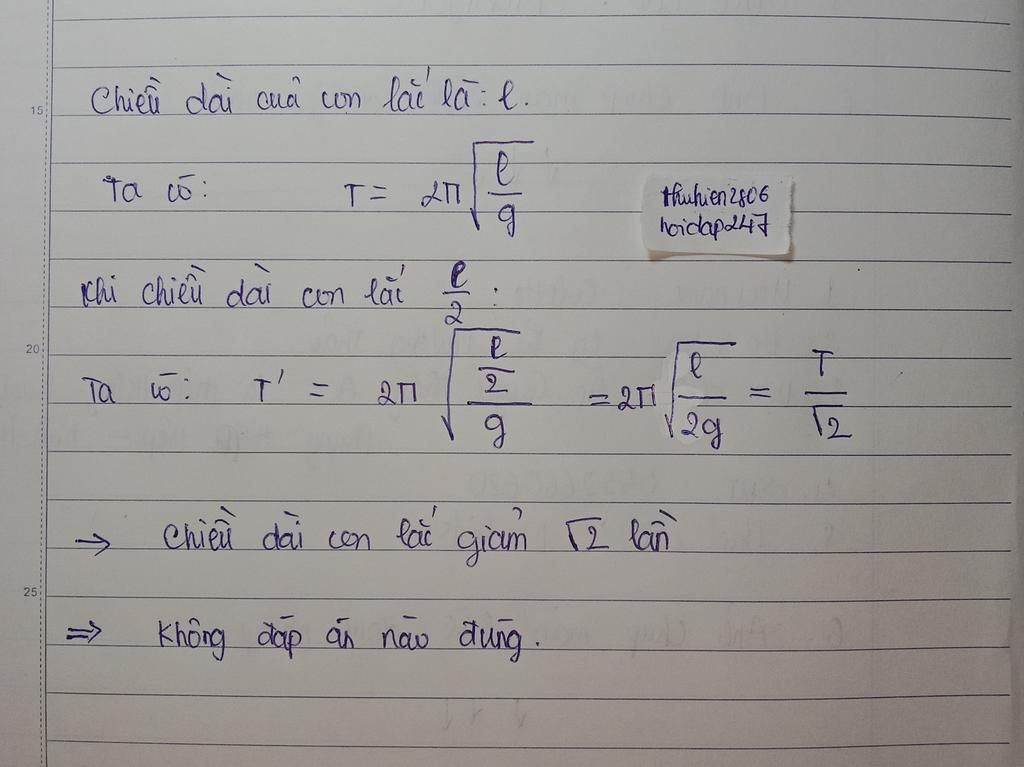 15
Chiều dài của con lắc là: l.
Ta có: T = 2π√(l/g)
thuhien2806
hoidap247
Khi chiều dài con lắc l/2 :
20
Ta có: T' = 2π√((l/2)/g) = 2π√(l/2g) = T/√2
→ Chiều dài con lắc giảm √2 lần
25
⇒ Không đáp án nào đúng.